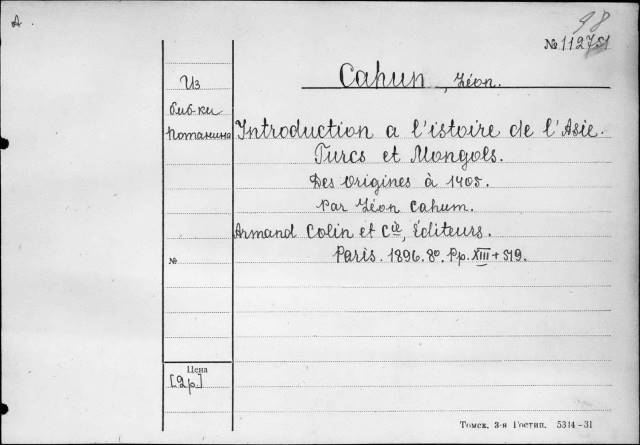 A
98
№ 112751
Из
биб-ки
Потанина
Cahun, Léon.
Introduction a l'istoire de l'Asie.
Turcs et Mongols.
Des Origines à 1405.
Par Léon Cahum.
Armand Colin et Cie, Éditeurs.
№
Paris. 1896. 8º. Pp. XIII + 519.
Цена
[2р.]
Томск. 3-я Гостип. 5314-31